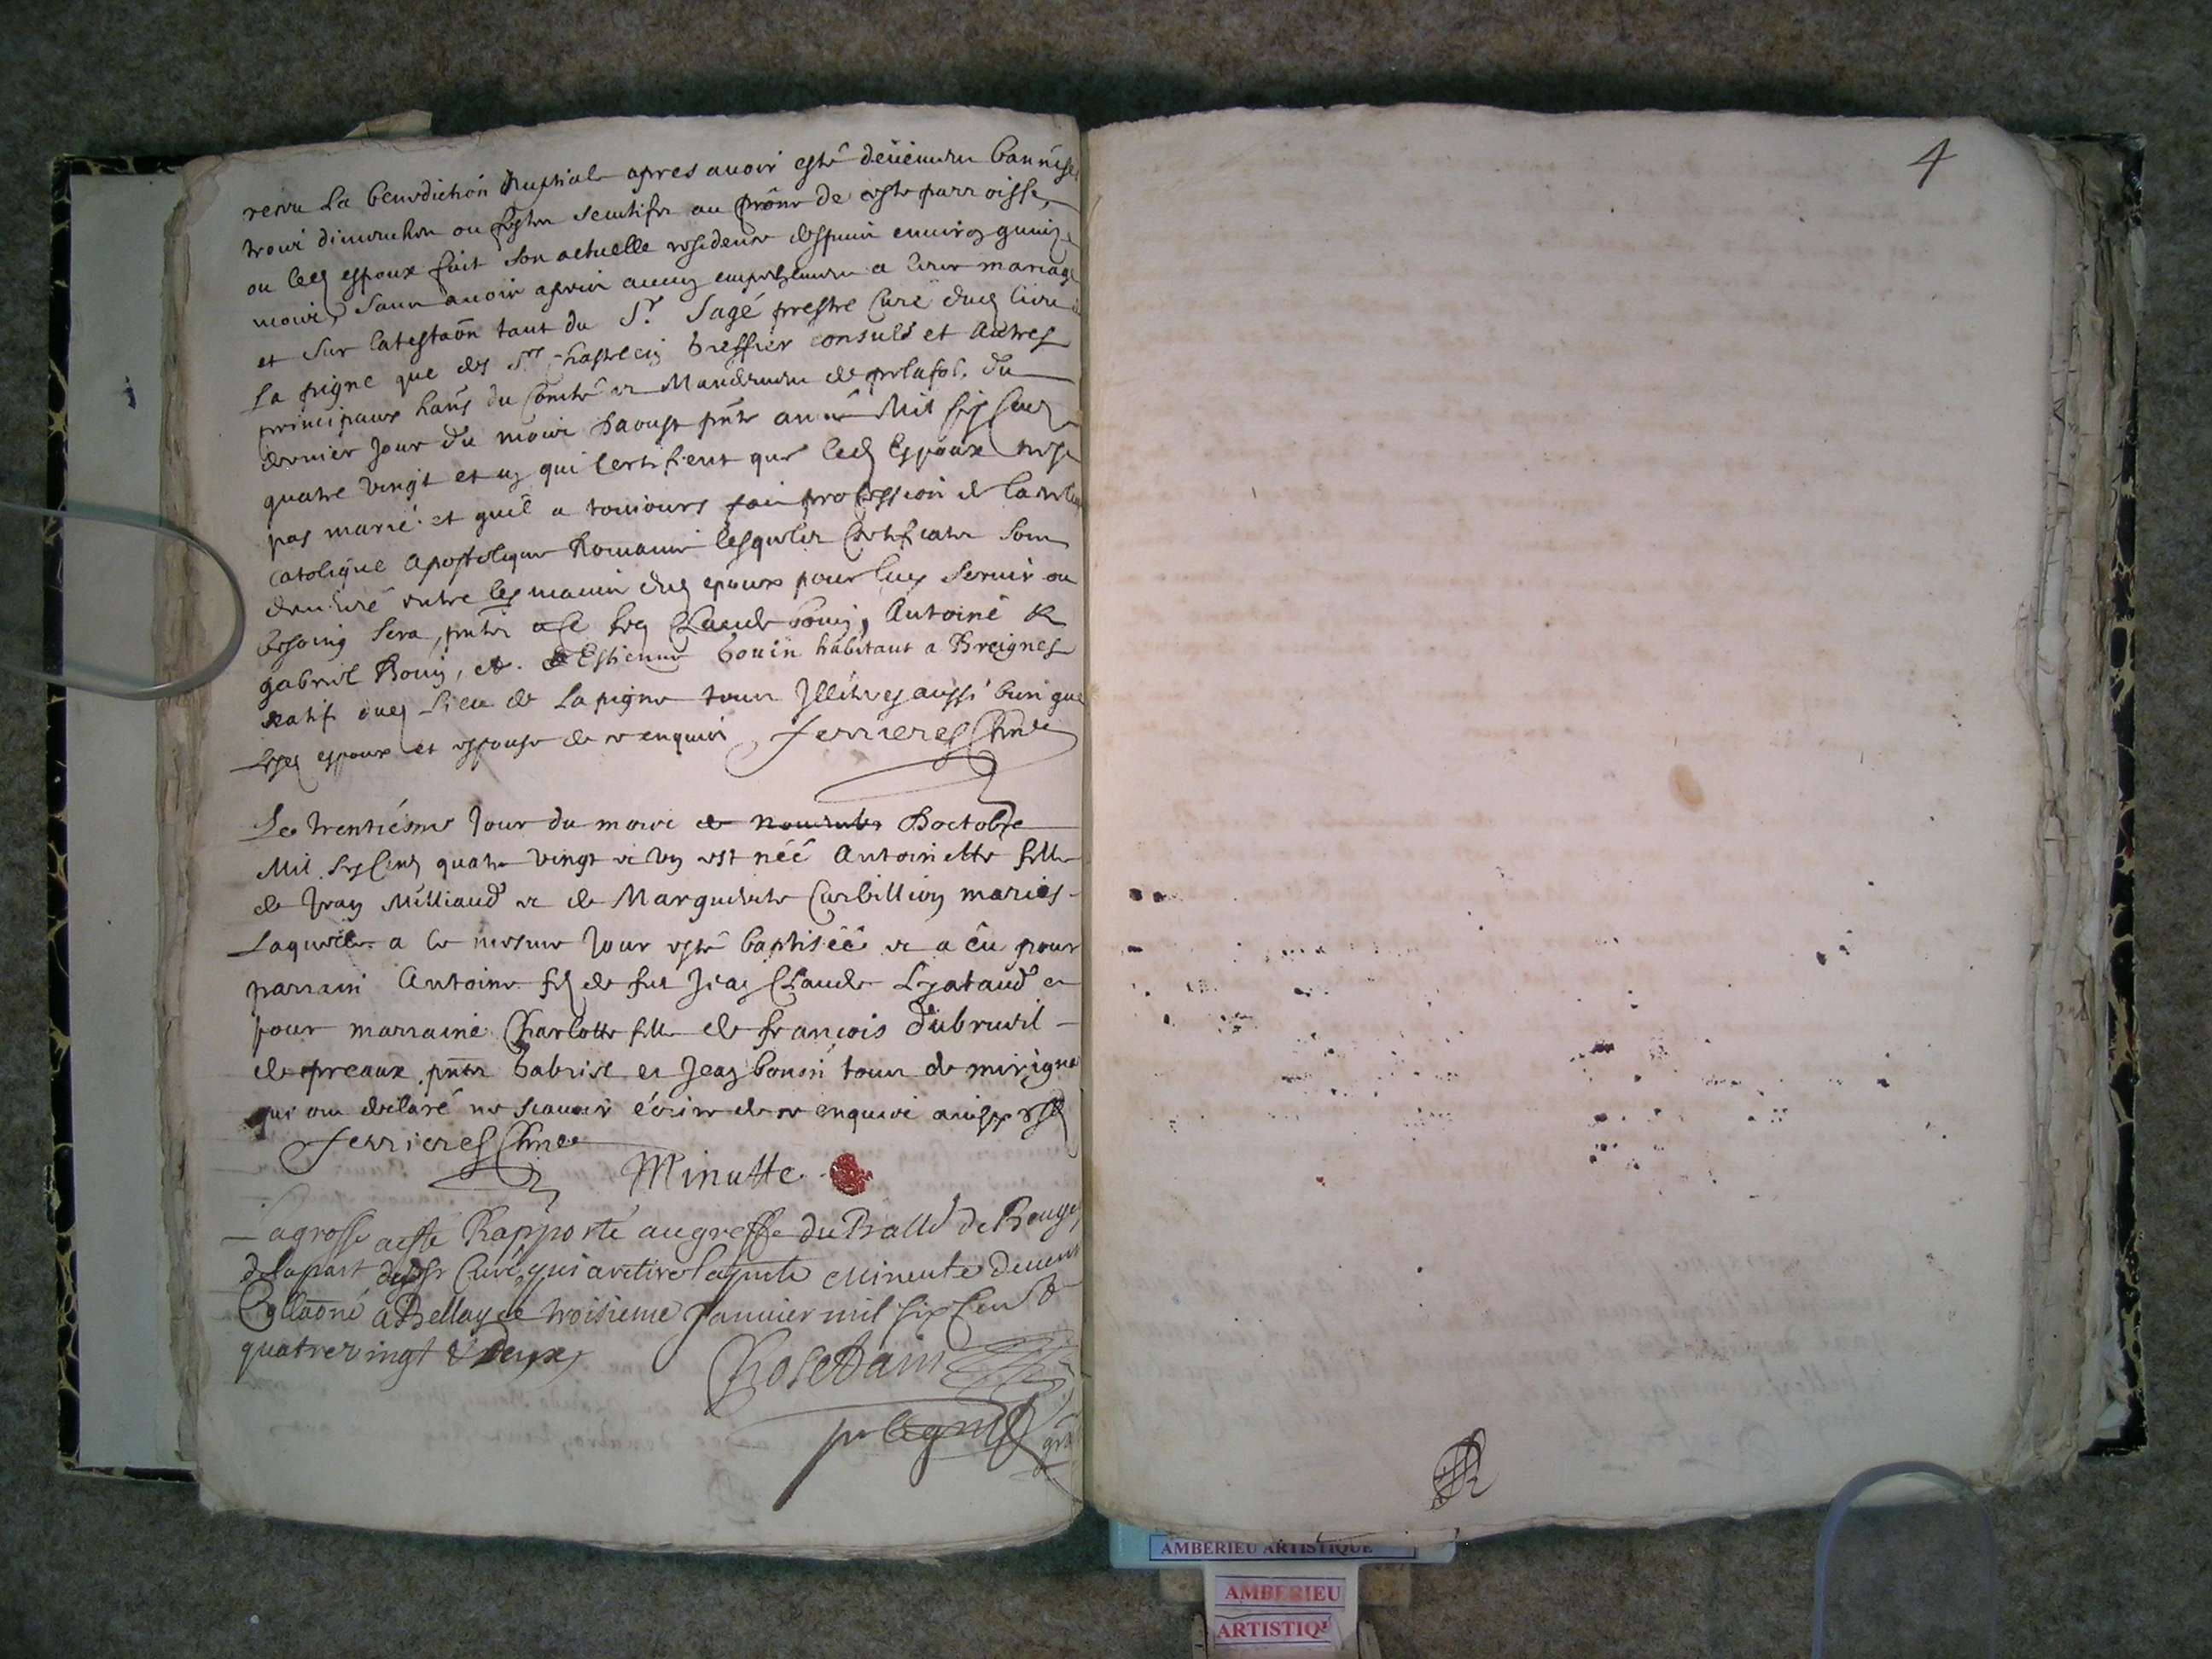 receu La benediction Nuptiale apres auoir esté deüement bannises
trois dimenches ou festes secutifes au prône de ceste parroisse,
ou led espoux fait son actuelle residence despuis enuiron quinze
mois, sans auoir apris aucun empechement a leur mariage
et sur latesta͠on tant du Sr. Sagé prestre Curé dud lieu de
La pigne que des Srs Chastelein Greffier consuls et autres
principaux han͠s du Comté et Mandement de du
dernier Jour du mois Daoust pn͠te année Mil six cens
quatre vingt et un qui Certifient que led Espoux nest
pas marié et quil a tousiours fait profession de la relig
catolique Apostolique Romaine lesquelles Certificats sont
demeuré entre les mains dud epoux pour luy seruir ou
besoing sera, pn͠ts a ce Claude bouin, Antoine &
gabriel Bouin, et Estienne bouïn habitant a Breignes
natif dud Lieu de Lapigne tous Jllitres aussi bien que
Lesd espoux et espouse de ce enquis Ferrieres Curé
Le trentiésme Jour du mois de nouembre Doctobre
Mil six Cens quatre vingt et un est néé Antoinette fille
de Jean Milliaud et de Marguerite Carbillion mariés
Laquelle a le mesme Jour esté baptiséé et a eu pour
parrain Antoine fils de feu Jean Claude Lyataud et
pour marraine Charlotte fille de francois dubrueil
de preaux pn͠ts Gabriel et Jean bouin tous de mirigne
qui ont declaré ne scauoir écrire de ce enquis
Ferrieres Curé
Minutte
La grosse aeste Rapporté augreffe du Ballē de Beugey
de la part dud Sr Curé, qui a retiré la pn͠te Mineute deuem
Colla͠oné a Bellay ce troisieme Januier mil six Cens
quatre vingt & Deux
4
AMBERIEU ARTISTIQUE
AMBERIEU
ARTISTIQ